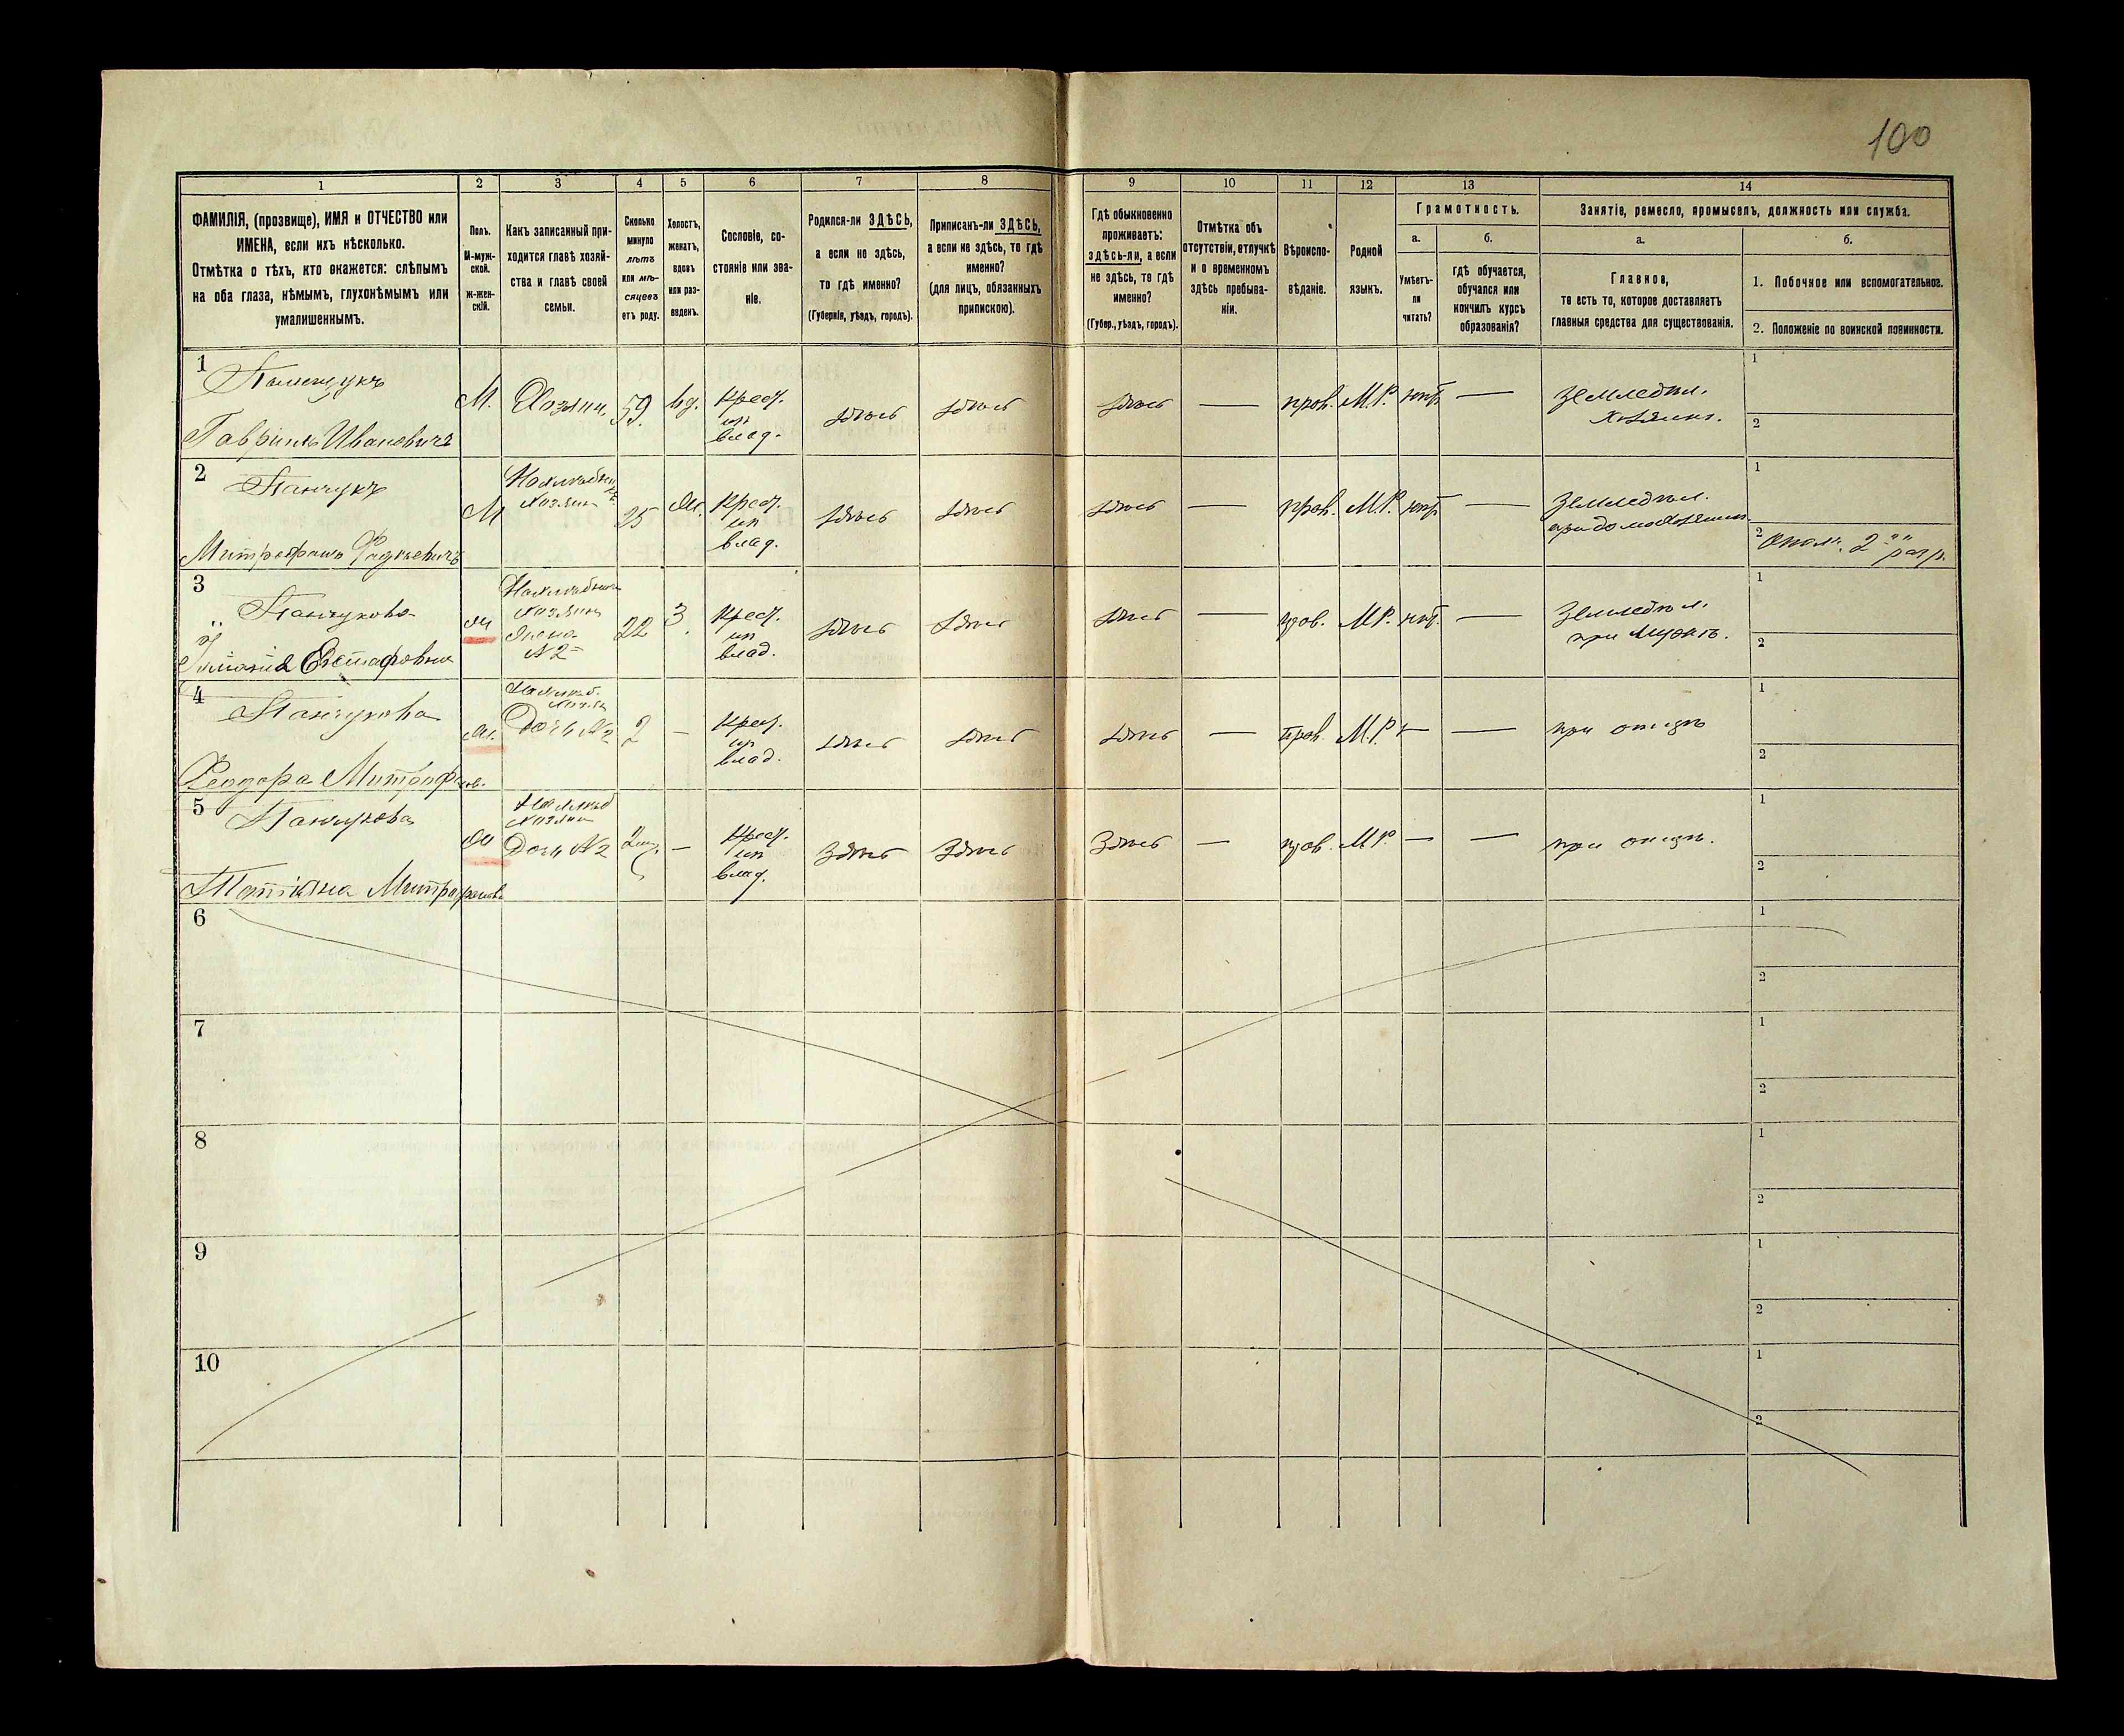 100
1 2 3 4 5 6 7 8 9 10 11 12 13 14
ФАМИЛІЯ, (прозвище), ИМЯ и ОТЧЕСТВО или
ИМЕНА, если ихъ нѣсколько.
Отмѣтка о тѣхъ, кто окажется: слѣпымъ
на оба глаза, нѣмымъ, глухонѣмымъ или
умалишеннымъ.
Полъ.
М-муж-
ской.
Ж-жен-
скій.
Какъ записанный при-
ходится главѣ хозяй-
ства и главѣ своей
семьи.
Сколько
минуло
лѣтъ
или мѣ-
сяцевъ
отъ роду.
Холостъ,
женатъ,
вдовъ
или раз-
веденъ.
Сословіе, со-
стояніе или зва-
ніе.
Родился-ли ЗДѢСЬ,
а если не здѣсь,
то гдѣ именно?
(Губернія, уѣздъ, городъ).
Приписанъ-ли ЗДѢСЬ,
а если не здѣсь, то гдѣ
именно?
(для лицъ, обязанныхъ
припискою).
Гдѣ обыкновенно
проживаетъ:
здѣсь-ли, а если
не здѣсь, то гдѣ
именно?
(Губер., уѣздъ, городъ).
Отмѣтка объ
отсутствіи, отлучкѣ
и о временномъ
здѣсь пребыва-
ніи.
Вѣроиспо-
вѣданіе.
Родной
языкъ.
Грамотность.
а.
Умѣетъ-
ли
читать?
б.
гдѣ обучается,
обучался или
кончилъ курсъ
образованія?
Занятіе, ремесло, промыселъ, должность или служба.
а.
Главное,
то есть то, которое доставляетъ
главныя средства для существованія.
б.
1. Побочное или вспомогательное.
2. Положеніе по воинской повинности.
1
Гавріилъ Ивановичъ
М. Хозяин. 59. вд. крест. из влад. здѣсь здѣсь здѣсь — прав. М.Р. нѣт — Земледѣл.
Хозяинъ.
1
2
2 Панчукъ
Митрофанъ
М
Хозяин
25 крест. из влад. здѣсь здѣсь здѣсь — прав. М.Р. нѣт — Земледѣл.
1
2 Ополч. 2 разр.
3 Панчукова
Евстафовна
Жена
№ 2
22 З. крест. из влад. здѣсь здѣсь здѣсь — прав. М.Р. нѣт. — Земледѣл.
при мужѣ.
1
2
4 Панчукова
Феодора Митрофанов.
Дочь № 2 2 — крест. из влад. здѣсь здѣсь здѣсь — прав. М.Р. — — при отцѣ
1
2
5 Панчукова
Татіяна Митрофанова
Дочь № 2 — крест. из влад. Здѣсь Здѣсь Здѣсь — прав. М.Р. — — при отцѣ.
1
2
6
1
2
7
1
2
8
1
2
9
1
2
10
1
2